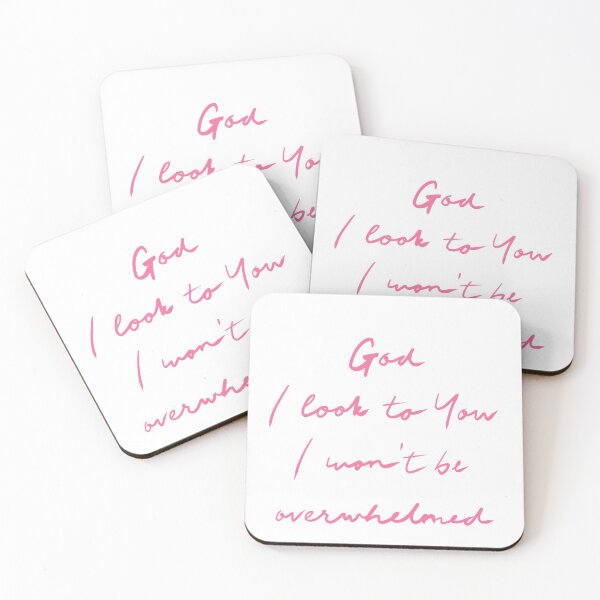 God
I look to You
be
God
I look to You
I won't be
God
I look to You
I won't
overwhel
God
I look to You
I won't be
overwhelmed